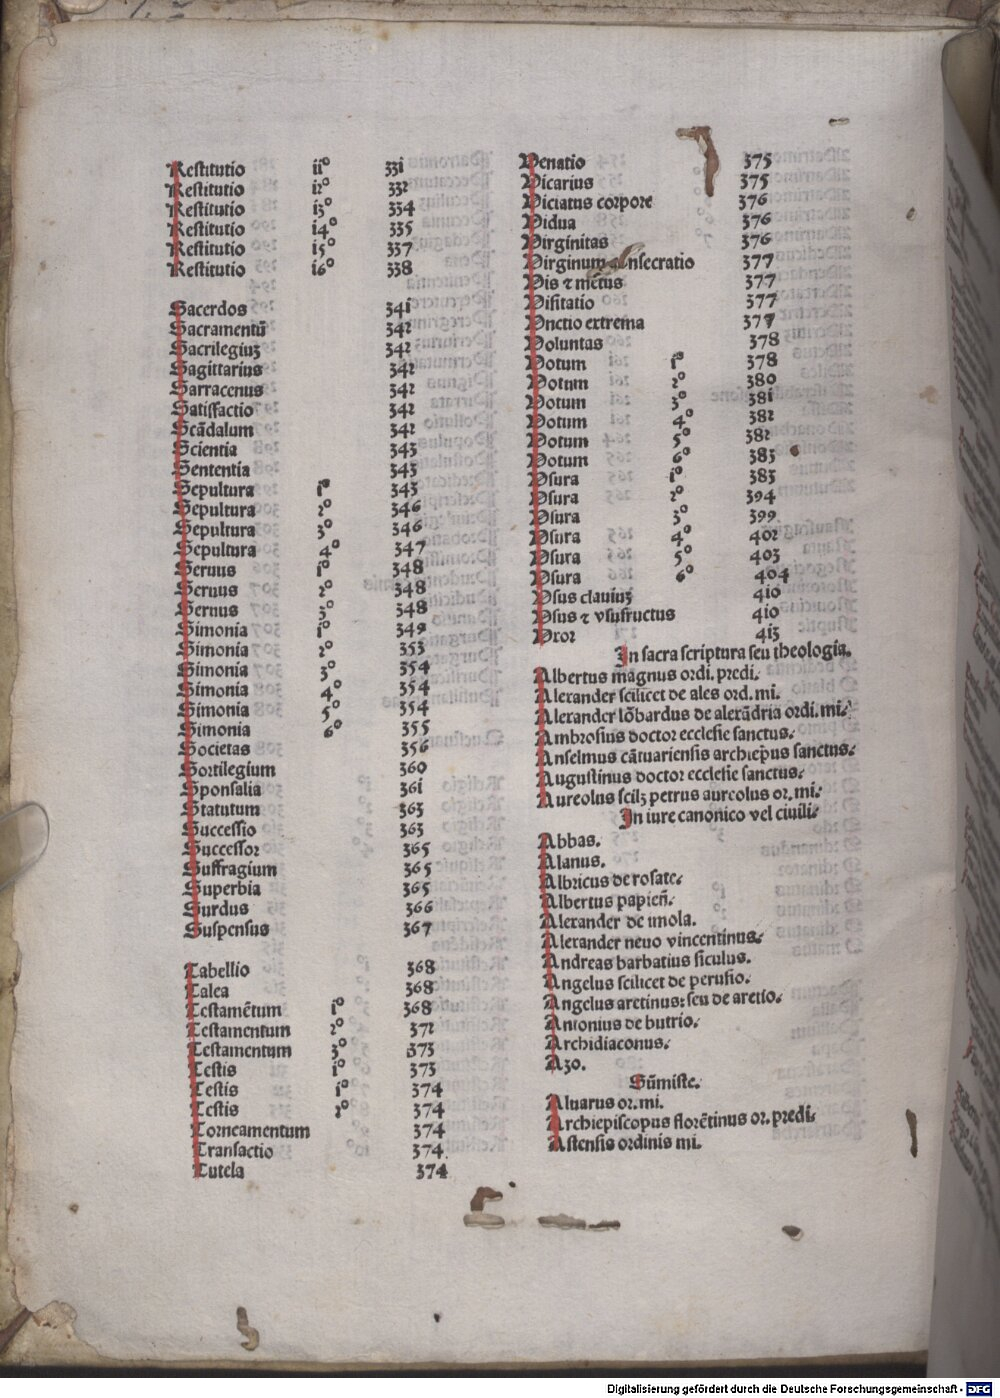 Restitutio ii° 331
Restitutio 12° 332
Restitutio 13° 334
Restitutio 14° 335
Restitutio 15° 337
Restitutio 16° 338
Sacerdos 341
Sacramentū 342
Sacrilegiuʒ 342
Sagittarius 342
Sarracenus 342
Satisfactio 342
Scādalum 342
Scientia 343
Sententia 343
Sepultura 1° 343
Sepultura 2° 346
Sepultura 3° 346
Sepultura 4° 347
Seruus 1° 348
Seruus 2° 348
Seruus 3° 348
Simonia 1° 349
Simonia 2° 353
Simonia 3° 354
Simonia 4° 354
Simonia 5° 354
Simonia 6° 355
Societas 356
Sortilegium 360
Sponsalia 361
Statutum 363
Successio 363
Successor 365
Suffragium 365
Superbia 365
Surdus 366
Suspensus 367
Tabellio 368
Talea 368
Testamētum 1° 368
Testamentum 2° 372
Testamentum 3° 373
Testis 1° 373
Testis 1° 374
Testis 2° 374
Torneamentum 374
Transactio 374
Tutela 374
Venatio 375
Vicarius 375
Viciatus corpore 376
Vidua 376
Virginitas 376
Virginum nsecratio 377
Vis ⁊ mētus 377
Visitatio 377
Vnctio extrema 377
Voluntas 378
Votum 1° 378
Votum 2° 380
Votum 3° 381
Votum 4° 382
Votum 5° 382
Votum 6° 383
Vsura 1° 383
Vsura 2° 394
Vsura 3° 399
Vsura 4° 402
Vsura 5° 403
Vsura 6° 404
Vsus clauiuʒ 410
Vsus ⁊ vsufructus 410
Vxor 413
In sacra scriptura seu theologia.
Albertus magnus ordi. predi.
Alexander scilicet de ales ord. mi.
Alexander lōbardus de alexādria ordi. mi.
Ambrosius doctor ecclesie sanctus.
Anselmus cātuariensis archiep̄us sanctus.
Augustinus doctor ecclesie sanctus.
Aureolus scilʒ petrus aureolus or. mi.
In iure canonico vel ciuili.
Abbas.
Alanus.
Albricus de rosate.
Albertus papien̄.
Alexander de imola.
Alexander neuo vincentinus.
Andreas barbatius siculus.
Angelus scilicet de perusio.
Angelus aretinus: seu de aretio.
Antonius de butrio.
Archidiaconus.
Azo.
Sūmiste.
Aluarus or. mi.
Archiepiscopus florētinus or. predi.
Astensis ordinis mi.
Digitalisierung gefördert durch die Deutsche Forschungsgemeinschaft - DFG